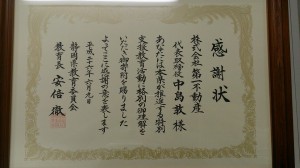 感謝状
株式会社 第一不動産
代表取締役 中島 敦 様
あなたは本県が推進する特別
支援教育活動に格別の御理解を
いただき御寄附を賜りました
よってここに感謝の意を表します
平成二十六年六月九日
静岡県教育委員会
教育長 安倍 徹